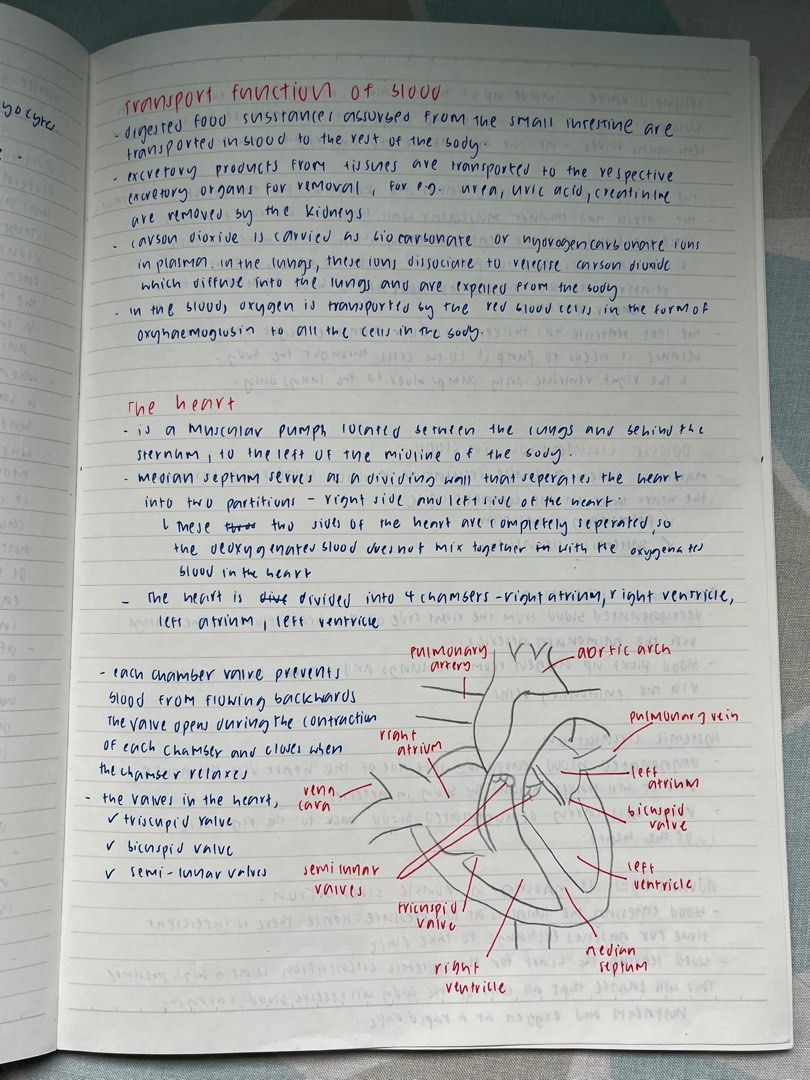 yocytes.
Transport function of blood
- digested food substances absorbed from the small intestine are
transported in blood to the rest of the body.
- excretory products from tissues are transported to the respective
excretory organs for removal, for e.g. urea, uric acid, creatinine
are removed by the kidneys
- carbon dioxide is carried as biocarbonate or hydrogencarbonate ions
in plasma. in the lungs, these ions dissociate to release carbon dioxide
which diffuse into the lungs and are expelled from the body
- in the blood, oxygen is transported by the red blood cells in the form of
oxyhaemoglobin to all the cells in the body.
The heart
- is a muscular pump located between the lungs and behind the
sternum, to the left of the midline of the body.
- median septum serves as a dividing wall that seperates the heart
into two partitions - right side and left side of the heart.
↳ these two sides of the heart are completely seperated, so
the deoxygenated blood does not mix together with the oxygenated
blood in the heart
- The heart is divided into 4 chambers - right atrium, right ventricle,
left atrium, left ventricle
- each chamber valve prevents
blood from flowing backwards
The valve opens during the contraction
of each chamber and closes when
the chamber relaxes
- the valves in the heart,
✓ triscupid valve
✓ bicuspid valve
✓ semi-lunar valves
pulmonary
artery
aortic arch
pulmonary vein
right
atrium
left
atrium
vena
cava
bicuspid
valve
semi lunar
valves
left
ventricle
tricuspid
valve
median
septum
right
ventricle